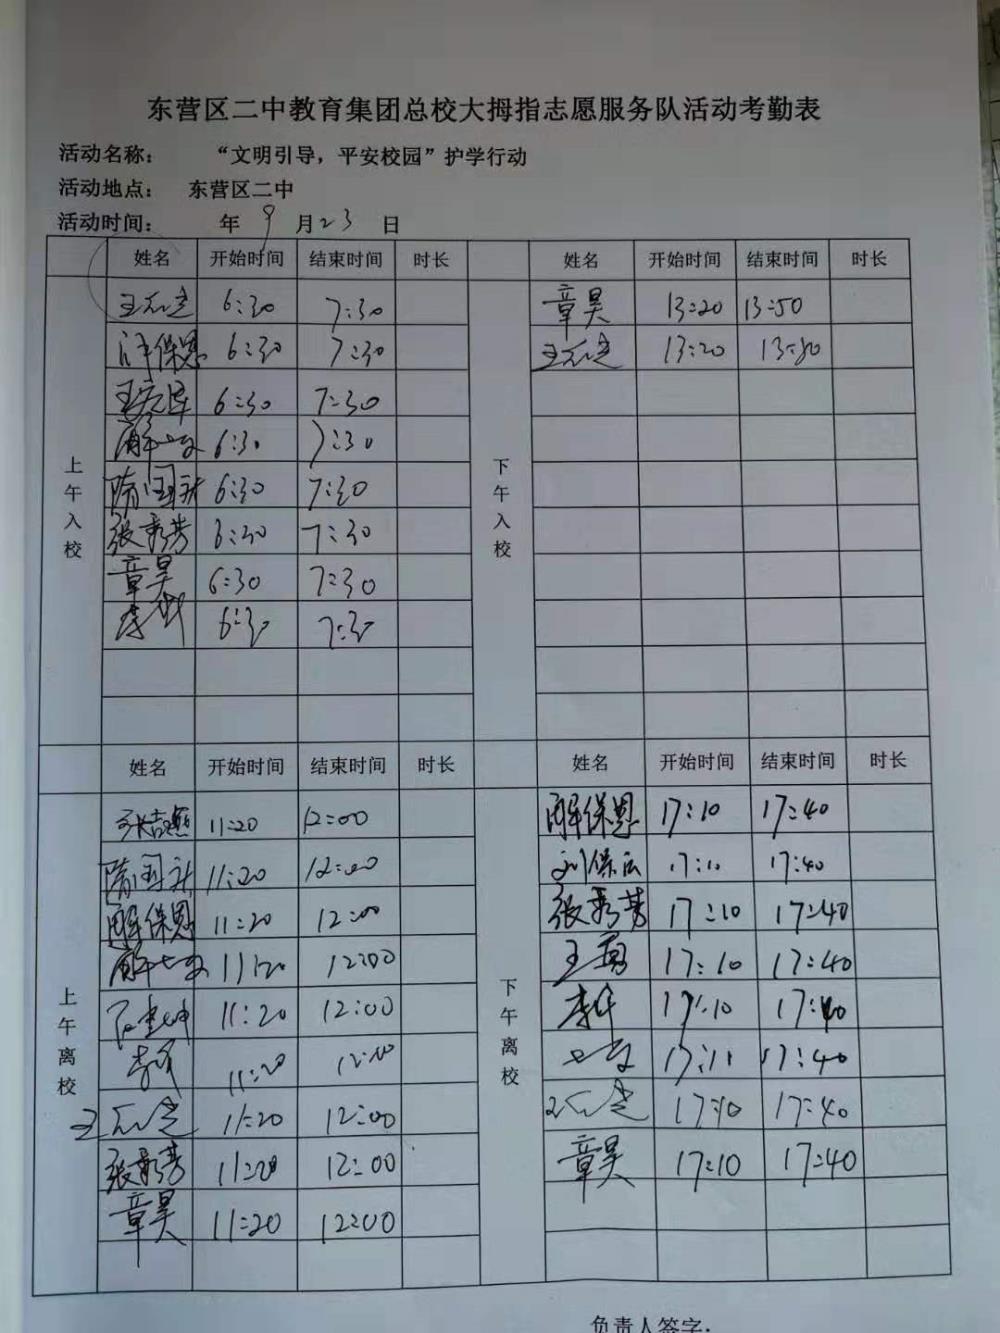 东营区二中教育集团总校大拇指志愿服务队活动考勤表
活动名称： “文明引导，平安校园”护学行动
活动地点： 东营区二中
活动时间： 年 9 月 23 日
姓名 开始时间 结束时间 时长 姓名 开始时间 结束时间 时长
上午入校
下午入校
6:30 7:30 章昊 13:20 13:50
保恩 6:30 7:30 13:20 13:50
6:30 7:30
6:30 7:30
隋国新 6:30 7:30
张秀芳 6:30 7:30
章昊 6:30 7:30
李 6:30 7:30
姓名 开始时间 结束时间 时长 姓名 开始时间 结束时间 时长
上午离校
下午离校
11:20 12:00 解保恩 17:10 17:40
隋国新 11:20 12:00 刘保 17:10 17:40
解保恩 11:20 12:00 张秀芳 17:10 17:40
11:20 12:00 王勇 17:10 17:40
11:20 12:00 17:10 17:40
11:20 12:00 17:11 17:40
王 11:20 12:00 17:10 17:40
张秀芳 11:20 12:00 章昊 17:10 17:40
章昊 11:20 12:00
负责人签字：